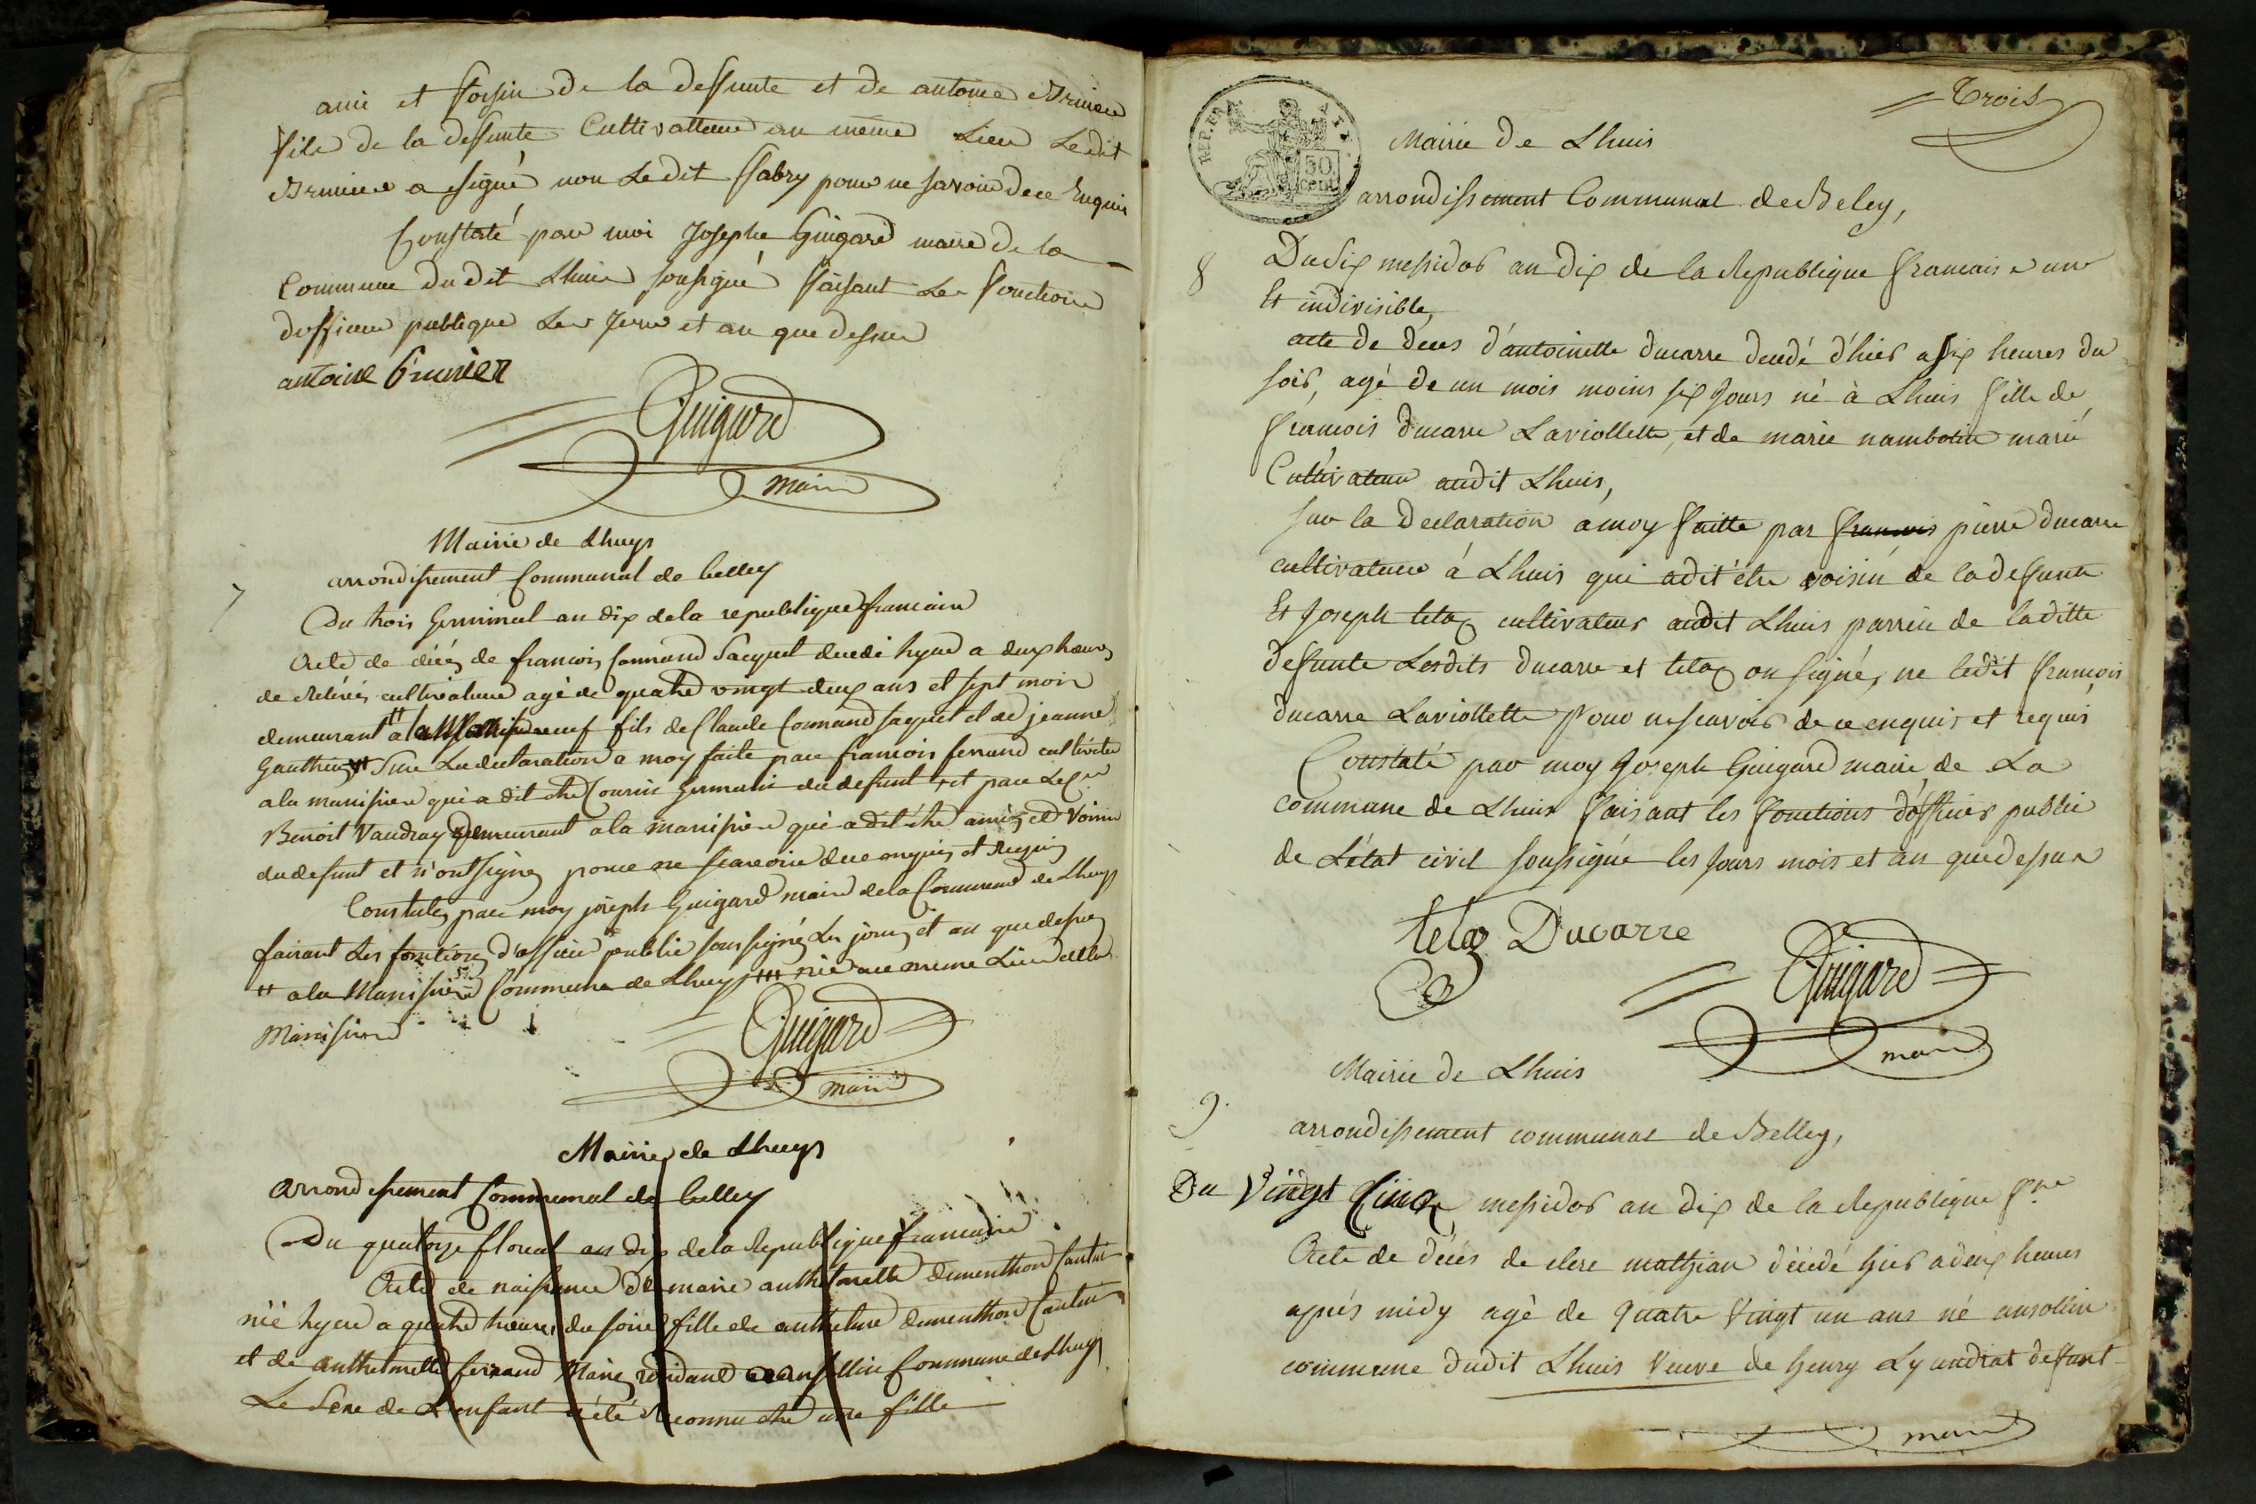 ami et voisin de la deffunte et de antoine Brunier
fils de la deffunte Cultivatteur au meme Lieu Ledit
Brunier a signé non Ledit ffabry pour ne savoir de ce Enquis
Constaté par moi Josephe Guigard maire de la
Commune du dit Lhuis soussigné ffaisant Les fonctions
dofficier publique Les Jour et an que dessus
antoine brunier
Guigard
maire
Mairie de Lhuys
arrondissement Communal de belley
7
Du trois Germinal an dix de la republique francaise
Acte de décés de francois Connand Jacquet decedé hyer a deux heures
de Relevée cultivateur agé de quatre vingt deux ans et sept mois
demeurant tt fils de Claude Connand Jacquet et de jeanne
Gauthier Sur La declaration a moy faite par francois ferrand cultivateur
a la manissiere qui a dit etre Cousin Germain du defunt et par Le
Benoit Vaudray Demeurant a la manissiere qui a dit être amis et Voisin
du defunt et n'ont signé pour ne scavoir de ce enquis et Requis
Constaté par moy joseph Guigard maire de la Commune de Lhuys
faisant Les fonctions d'officier public soussigné Les jour et an que dessus
tt a la Manissiere Commune de Lhuys ttt née au meme Lieu de la
Manissiere
Guigard
maire
Mairie de Lhuys
arrondissement Communal de belley
Du quatorze floreal an dix de la Republique francaise
Acte de naissance de marie anthelmette dementhon Cantin
née hyer a quatre heures du soir fille de anthelme dementhon Cantin
et de anthelmette ferrand Mariés residant a ansollin Commune de Lhuys
Le Sexe de L'enfant a été Reconnu etre une fille
Trois
REP. FRA
50
cent
Mairie de Lhuis
arrondissement Communal de Beley,
8
Du Six messidor an dix de la Republique francaise une
Et indivisible,
acte de déces d'antoinette ducarre decedé d'hier a six heures du
soir, agé de un mois moins six Jours né à Lhuis fille de
francois ducarre Laviollette, et de marie nambotin marié
Cultivateur audit Lhuis,
sur la declaration a moy faitte par francois pierre ducarre
cultivateur à Lhuis qui a dit être voisin de la defunte
Et Joseph tetaz cultivateur audit Lhuis parrein de laditte
defunte Lesdits ducarre et tetaz on signé, ne ledit francois
ducarre Laviollette pour ne scavoir de ce enquis et requis
Constaté par moy Joseph Guigard maire de La
commune de Lhuis faisant les fonctions d'officier public
de L'état civil soussigné les Jours mois et an que dessus
tetaz Ducarre
Guigard
maire
Mairie de Lhuis
9.
arrondissement communal de Belley,
Du Vingt Cinq messidor an dix de la Republique fne
Acte de décés de clere mathian décédé hier a deux heures
aprés midy agé de quatre Vingt un ans né ansollin
commune dudit Lhuis Veuve de henry Lyaudrat defunt
maire